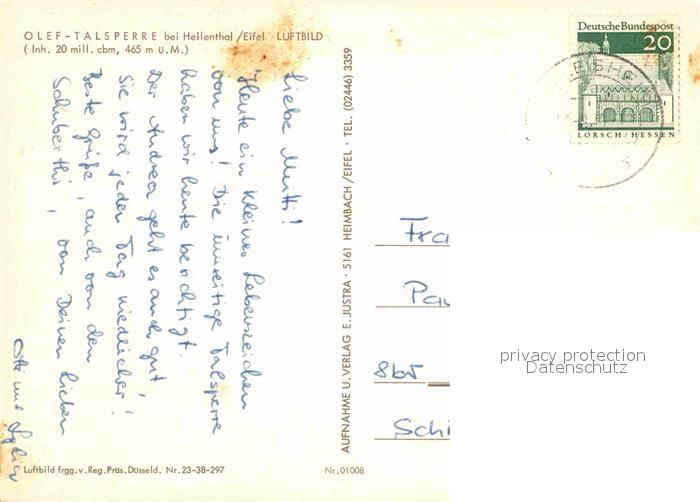 OLEF-TALSPERRE bei Hellenthal /Eifel LUFTBILD
( Inh. 20 mill. cbm, 465 m ü.M.)
Liebe Mutti!
Heute ein kleines Lebenszeichen
von uns! Die umseitige Talsperre
haben wir heute besichtigt.
Der Andrea geht es auch gut,
Sie wird jeden Tag niedlicher!
Beste Grüße, auch von den
Schuberths, von Deinen Lieben
und
AUFNAHME U. VERLAG E. JUSTRA · 5161 HEIMBACH /EIFEL · TEL. (02446) 3359
Deutsche Bundespost
20
LORSCH / HESSEN
Fra
Pau
865
Schi
privacy protection
Datenschutz
Luftbild frgg.v.Reg.Präs.Düsseld. Nr.23-38-297
Nr.01008